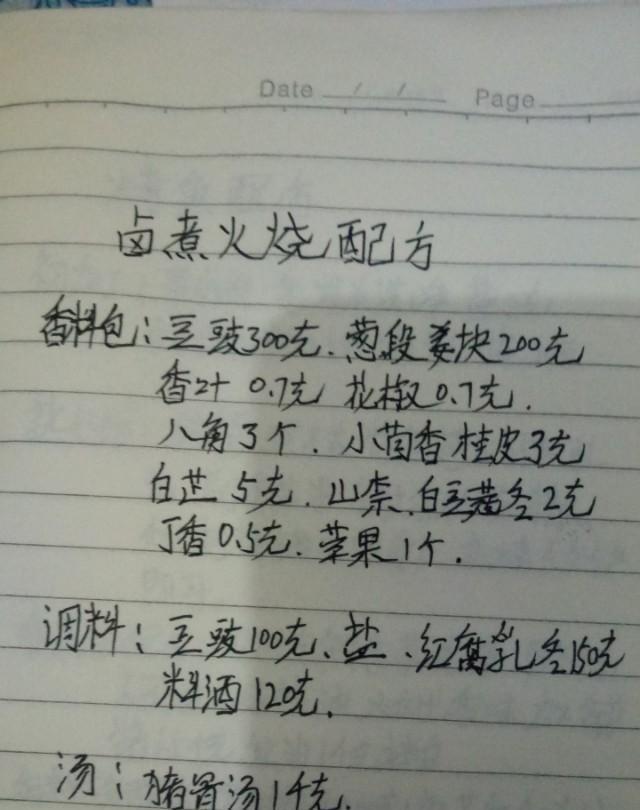 Date / / Page
卤煮火烧配方
香料包：豆豉300克、葱段姜块200克
香叶 0.7克 花椒0.7克.
八角3个. 小茴香桂皮3克
白芷5克. 山柰、白豆蔻各2克
丁香0.5克. 草果1个.
调料：豆豉100克、盐、红腐乳各150克
料酒120克.
汤：猪骨汤1千克.